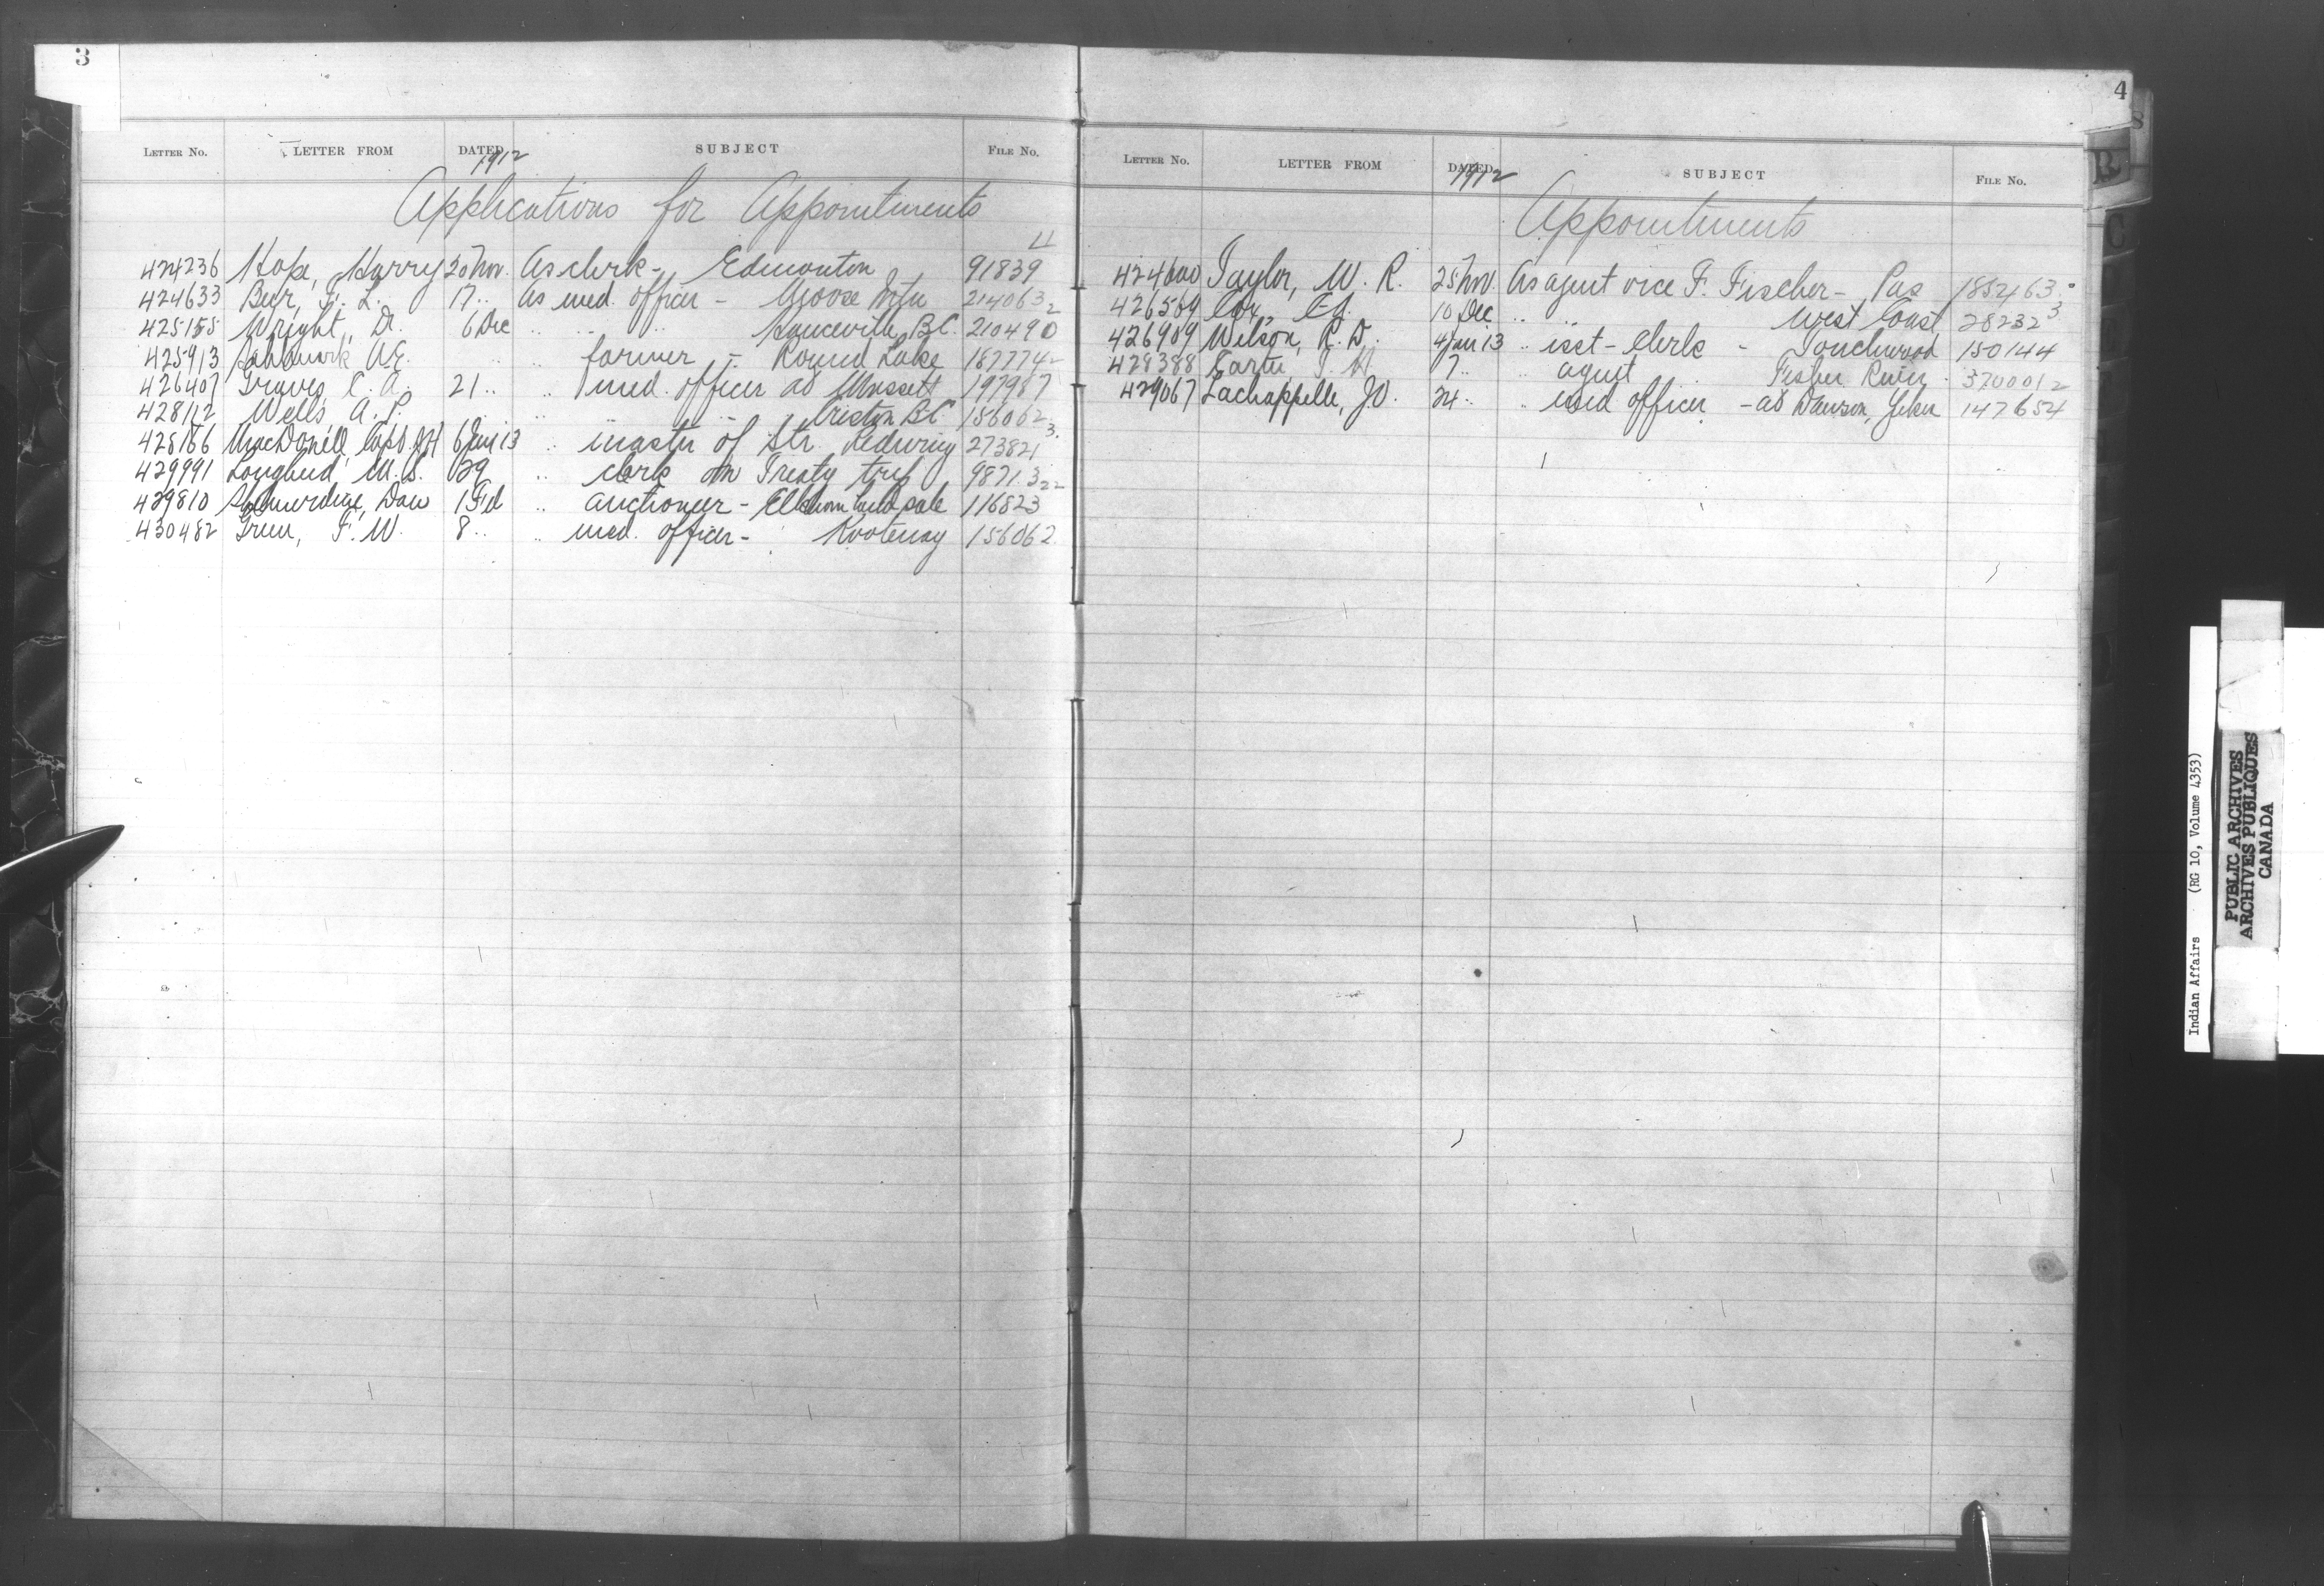 3
LETTER NO. LETTER FROM DATED SUBJECT FILE NO.
1912
Applications for Appointments
424236 Hope, Harry 20 Nov. As clerk - Edmonton 91839 11
424633 F. L. 17 .. As med. officer - Moose Mtn 214063 2
425155 Wright, Dr. 6 Dec .. .. .. Hanceville, B.C. 210490
425913 .. .. farmer - Round Lake 187774
426407 Graves, C. A. 21 .. .. med. officer at Massett 197987
428112 Wells, A. .. .. Creston BC 156062
428186 MacDonell, Capt 6 Jan 13 .. master of Str. Redwing 273821 3
429991 Lougheed, M. S. 29 .. clerk on Treaty trip 98713 22
429810 Dan 1 Feb .. auctioneer - Elkhorn land sale 116823
430482 Green, F. W. 8 .. .. med. officer - Kootenay 156062
4
LETTER NO. LETTER FROM DATED SUBJECT FILE NO.
1912
Appointments
424600 Taylor, W. R. 25 Nov. As agent vice F. Fischer - Pas 185246 3
426569 Cox, 10 Dec .. .. West Coast 28232 3
426989 Wilson, R. D. 4 Jan 13 .. asst - Clerk - Touchwood 150144
428388 Carter, T. H 7 .. .. agent Fisher River 370001 2
429067 Lachappelle, 24 .. .. med officer - at Dawson, Yukon 147654
B
C
Indian Affairs (RG 10, Volume 4353)
PUBLIC ARCHIVES
ARCHIVES PUBLIQUES
CANADA